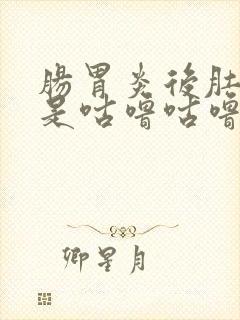 腸胃炎後肚
是咕嚕咕嚕
卿星月